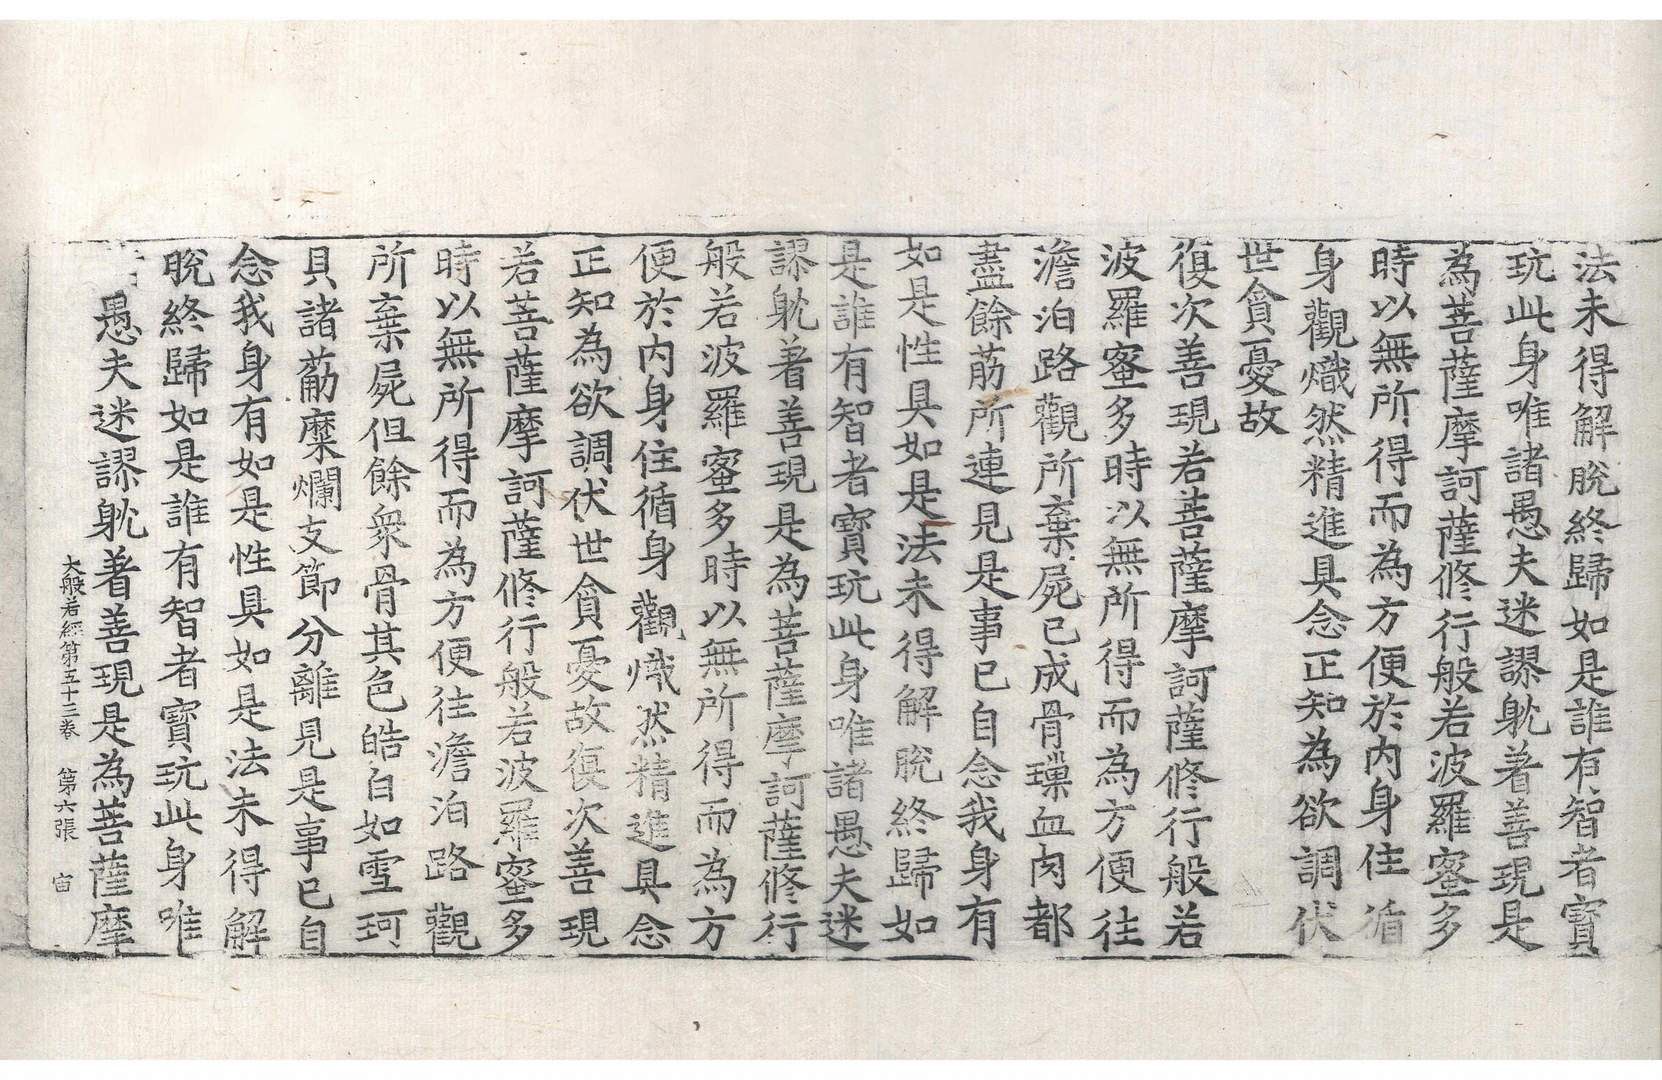 法未得解脫終歸如是誰有智者寶
玩此身唯諸愚夫迷謬躭著善現是
為菩薩摩訶薩修行般若波羅蜜多
時以無所得而為方便於內身住循
身觀熾然精進具念正知為欲調伏
世貪憂故
復次善現若菩薩摩訶薩修行般若
波羅蜜多時以無所得而為方便往
澹泊路觀所棄屍已成骨璅血肉都
盡餘筋所連見是事已自念我身有
如是性具如是法未得解脫終歸如
是誰有智者寶玩此身唯諸愚夫迷
謬躭著善現是為菩薩摩訶薩修行
般若波羅蜜多時以無所得而為方
便於內身住循身觀熾然精進具念
正知為欲調伏世貪憂故復次善現
若菩薩摩訶薩修行般若波羅蜜多
時以無所得而為方便往澹泊路觀
所棄屍但餘衆骨其色皓白如雪珂
貝諸筋糜爛支節分離見是事已自
念我身有如是性具如是法未得解
脫終歸如是誰有智者寶玩此身唯
愚夫迷謬躭著善現是為菩薩摩
大般若經第五十三卷 第六張 宙